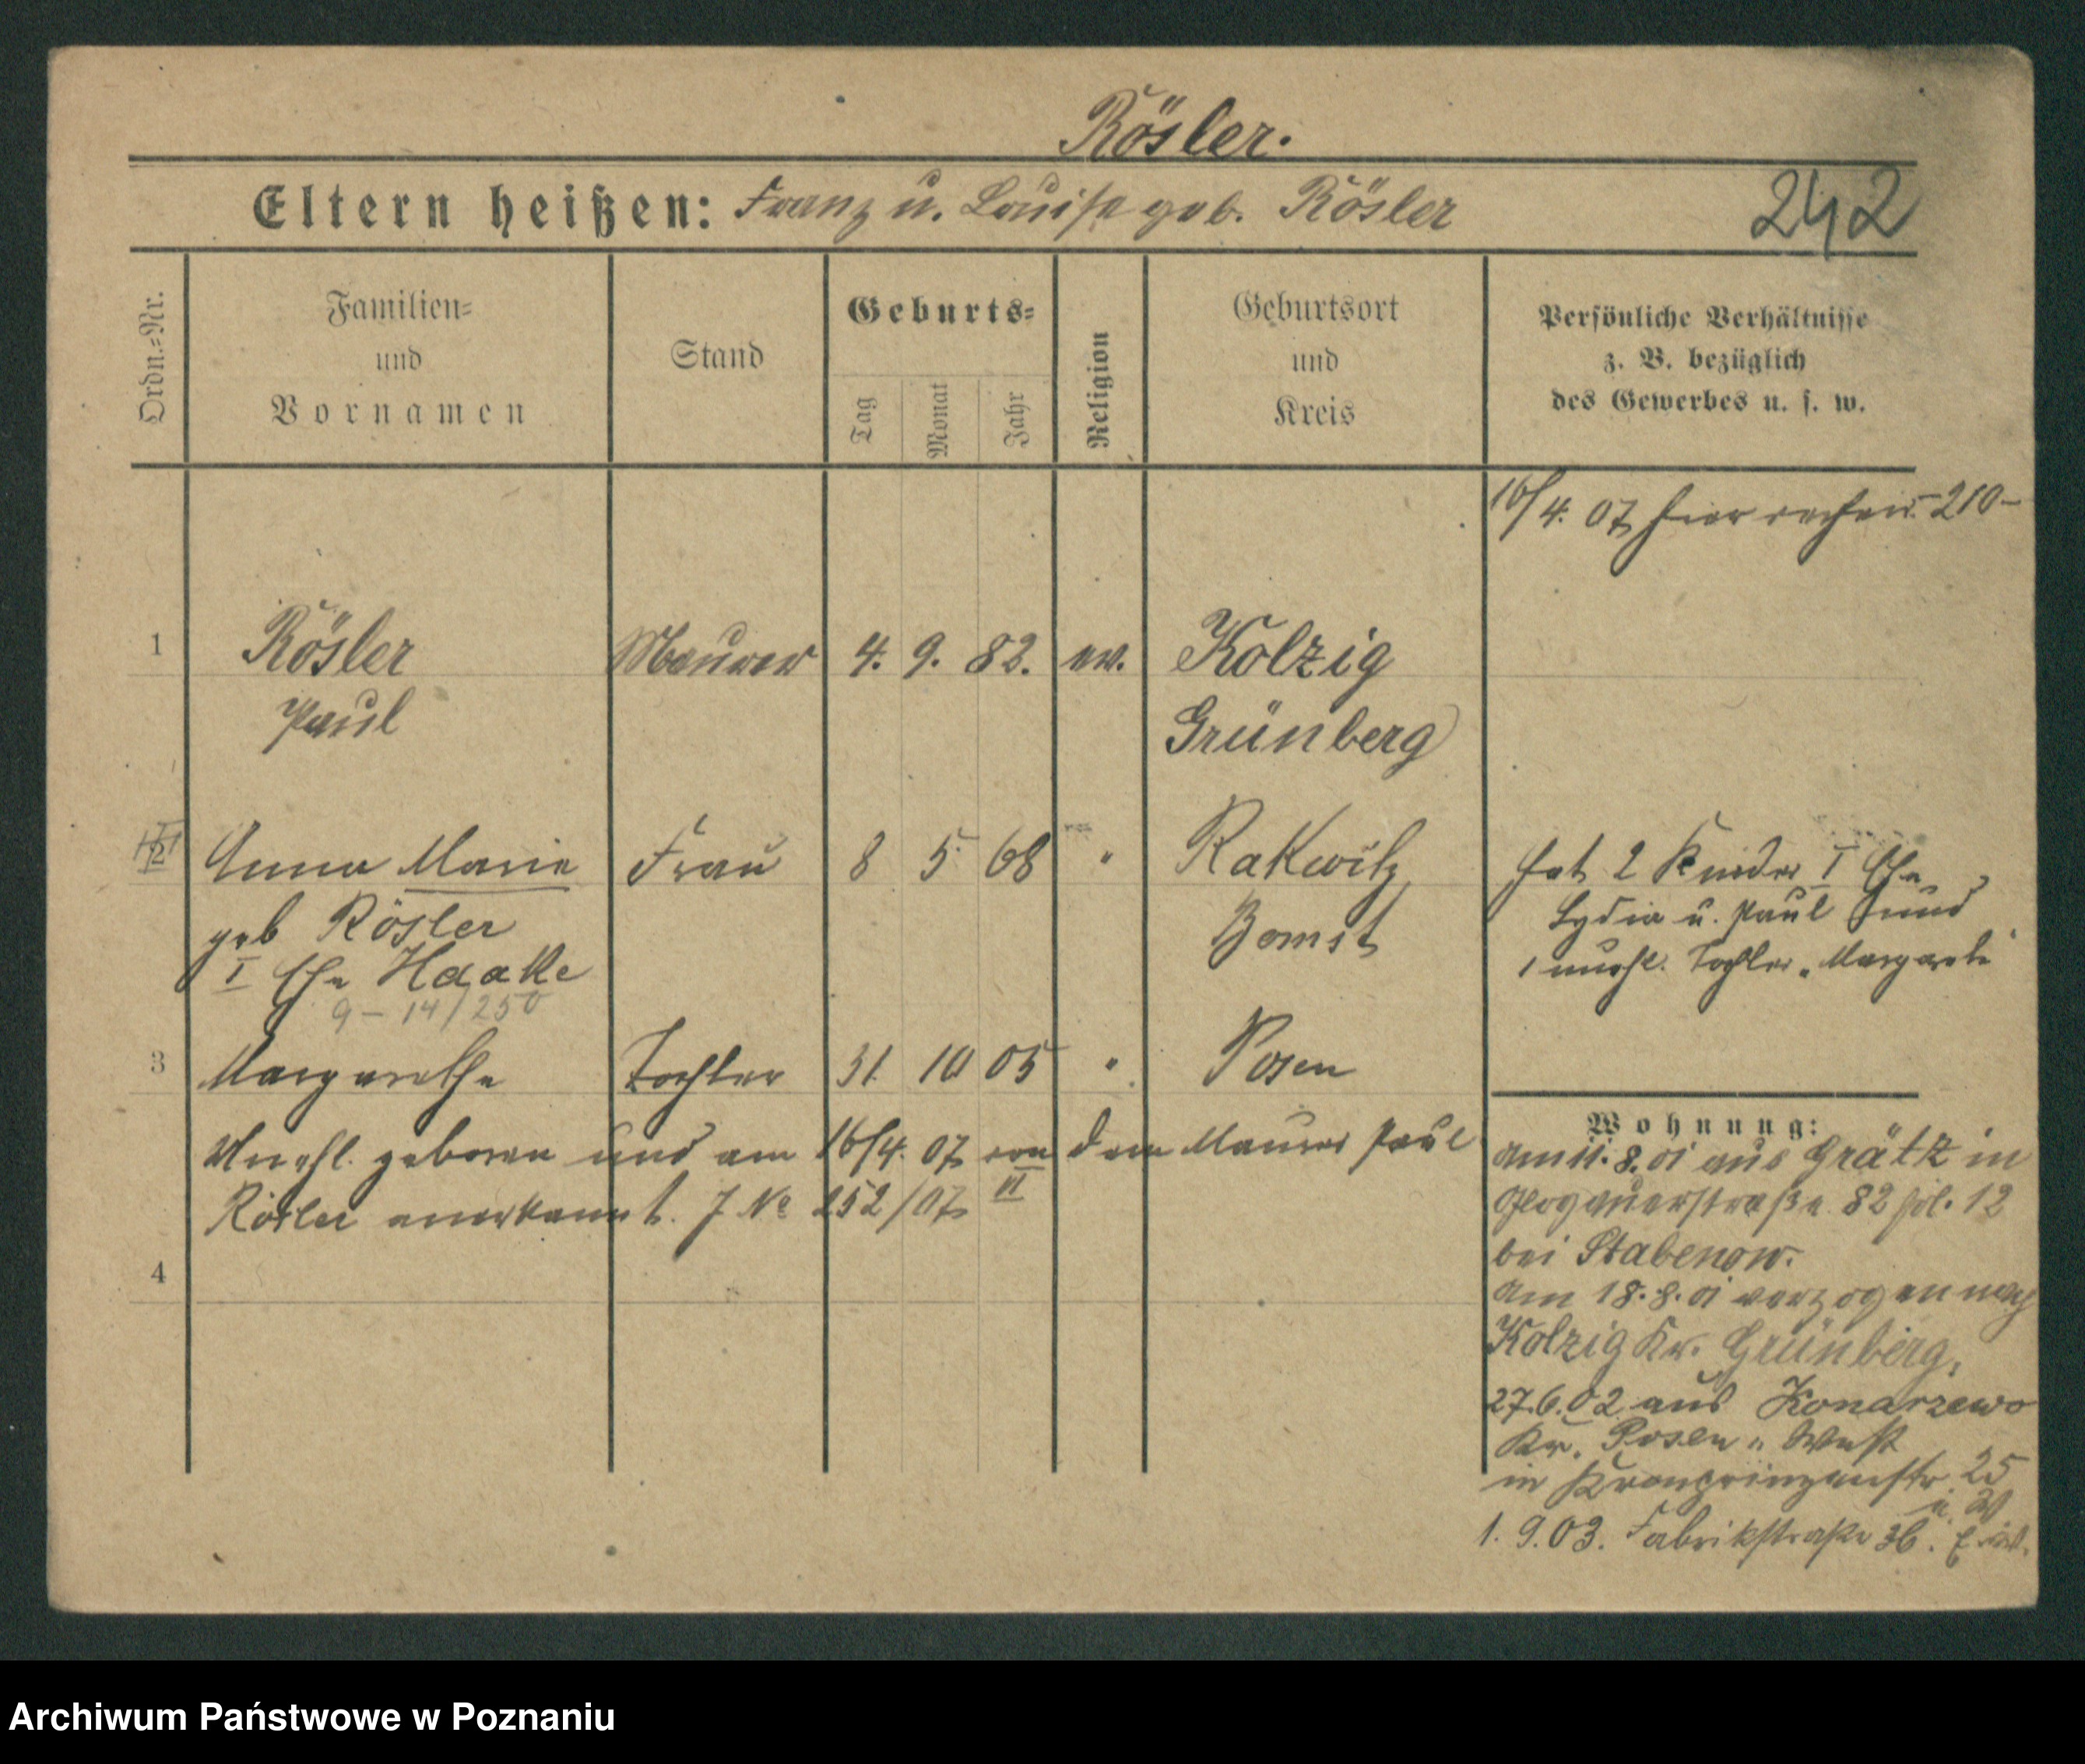 Rösler.
Eltern heißen: Franz u. Louise geb. Rösler 242
Ordn.=Nr.
Familien=
und
Vornamen
Stand
Geburts=
Tag
Monat
Jahr
Religion
Geburtsort
und
Kreis
Persönliche Verhältnisse
z. B. bezüglich
des Gewerbes u. s. w.
16/4. 07 hier 210-
1 Rösler Maurer 4. 9. 82. ev. Kolzig
Paul Grünberg
2 Anna Marie Frau 8 5 68 " Rakwitz
geb Rösler Bomst
I Ehe Haake
9-14/250
hat 2 Kinder I Ehe
Lydia u. Paul und
1 unehl. Tochter "Margarete"
3 Margarethe Tochter 31 10 05 " Posen
Unehl. geboren und am 16/4. 07 von dem Maurer Paul
Rösler anerkannt. J No 252/07 II
4
Wohnung:
am 11.8.01 aus Grätz in
Glogauerstraße 82 12
bei Stabenow.
am 18.8.01 verzogen nach
Kolzig Kr. Grünberg,
27.6.02 aus Konarzewo
Kr. Posen "West
in Kronprinzenstr. 25
1. 9.03. Fabrikstraße 36.
Archiwum Państwowe w Poznaniu